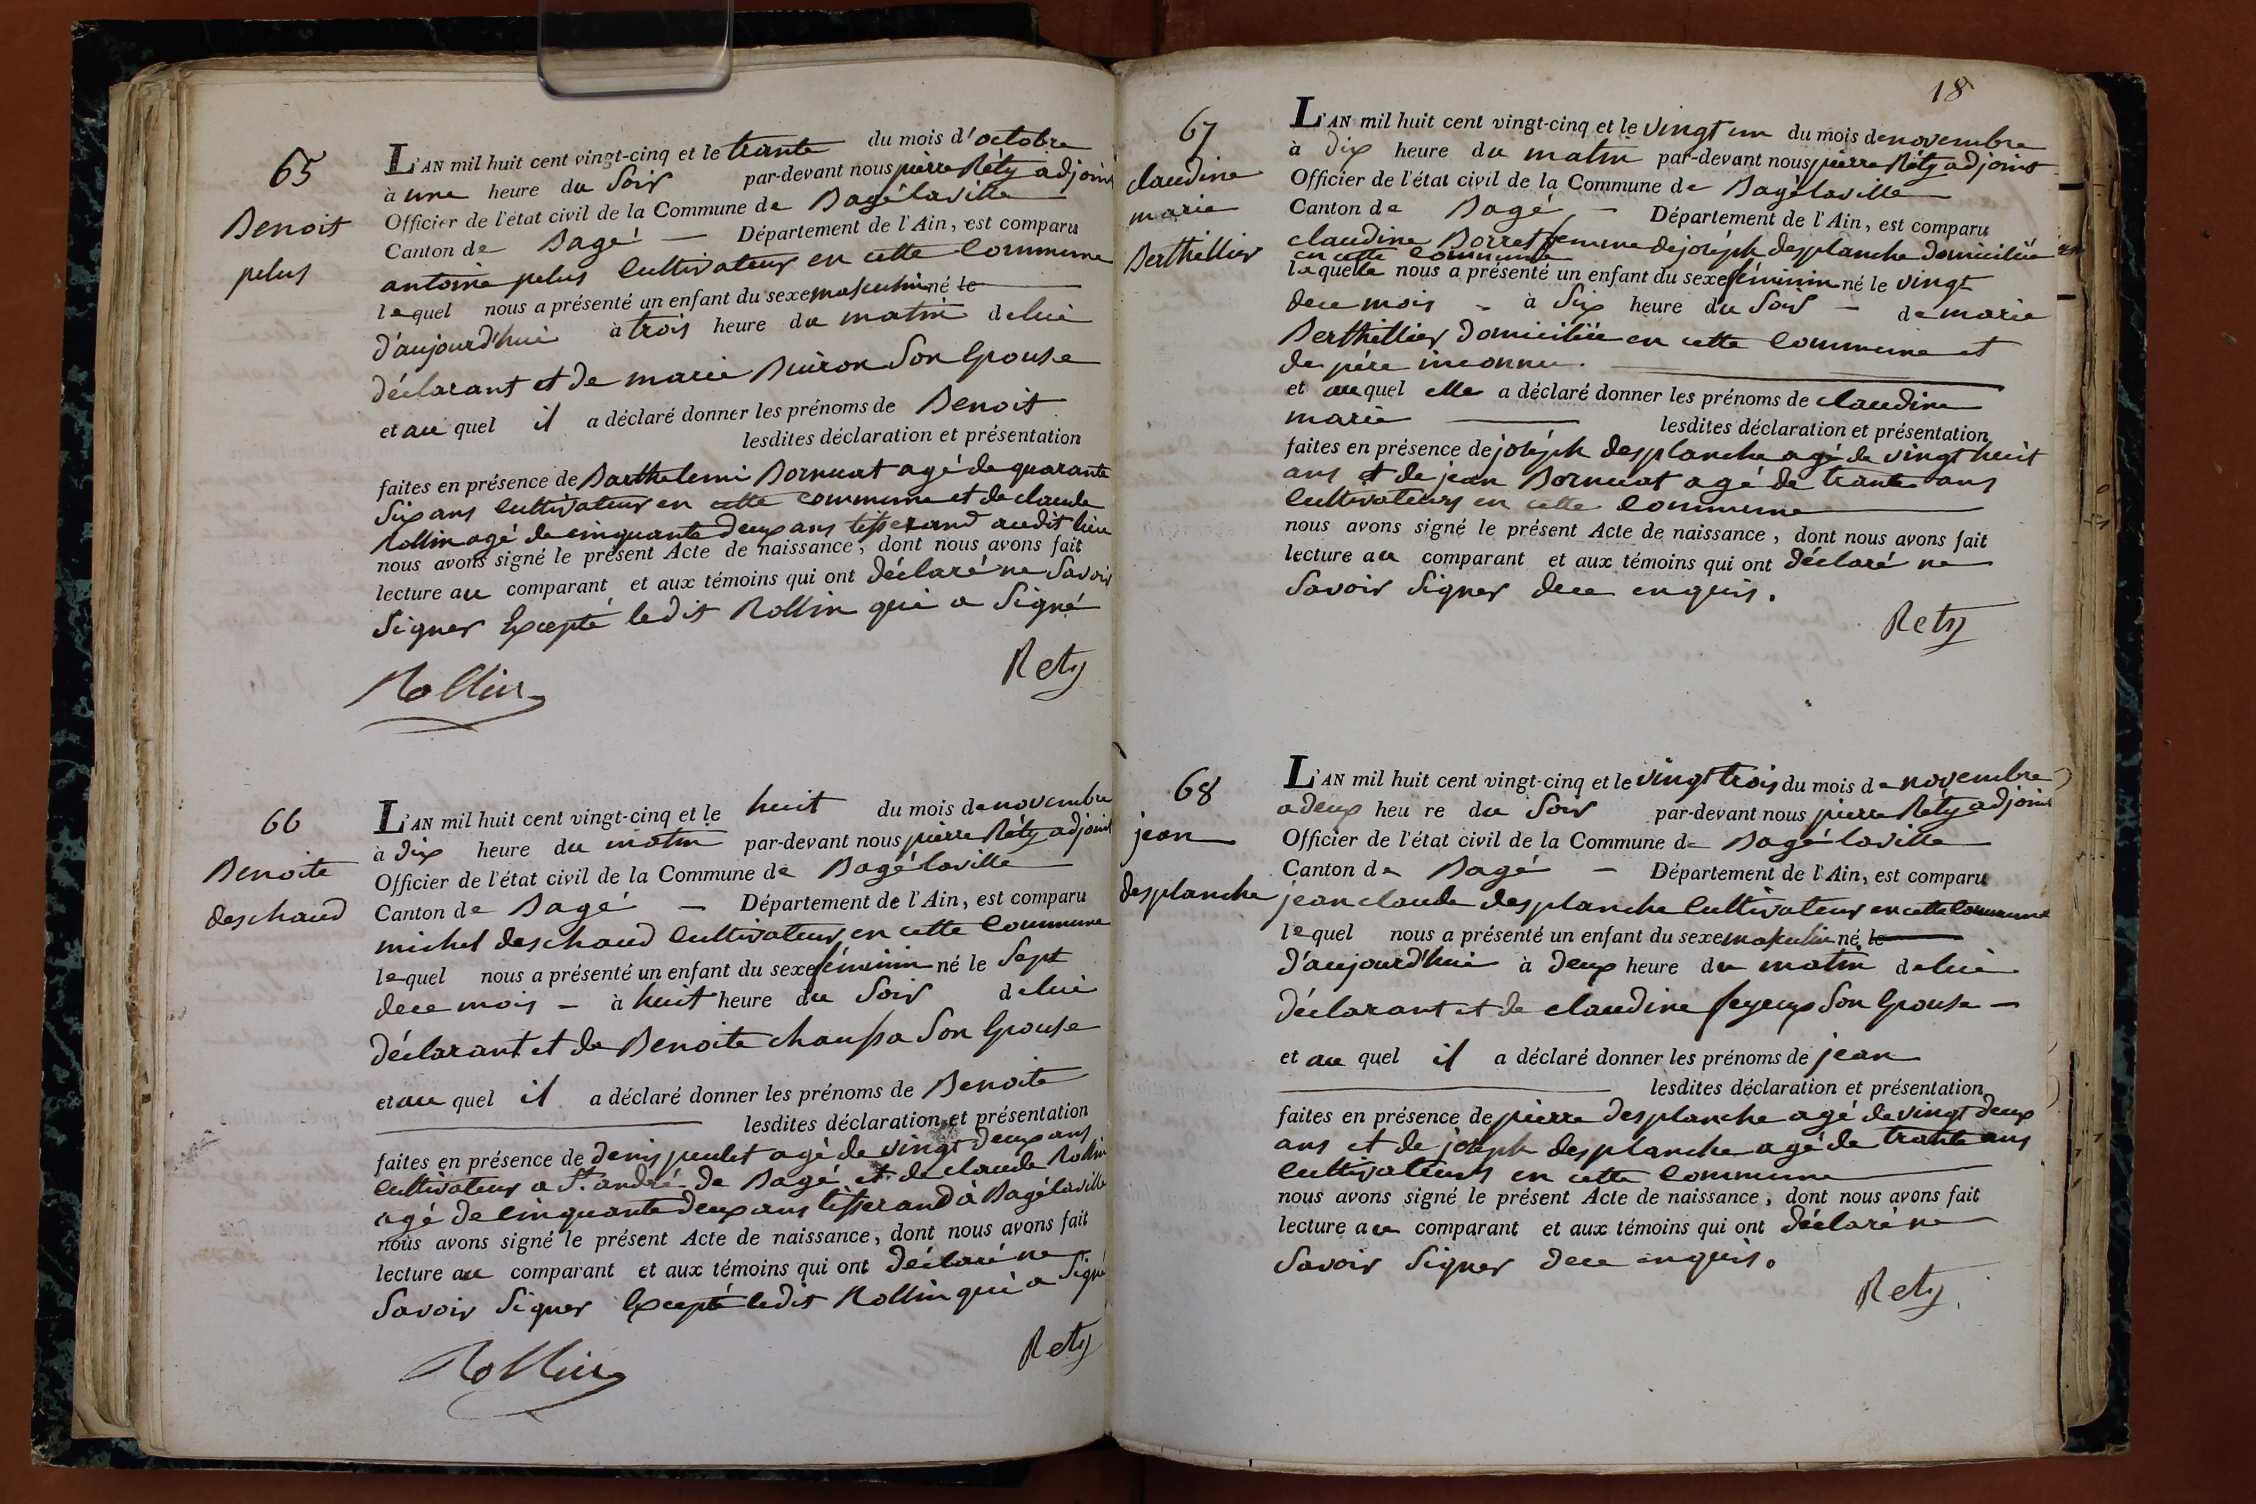 65
Benoit
pelus
L'AN mil huit cent vingt-cinq et le trante du mois d'octobre
à une heure du Soir par-devant nous pierre Réty adjoint
Officier de l'état civil de la Commune de Bagélaville
Canton de Bagé — Département de l'Ain, est comparu
antoine pelus Cultivateur en cette Commune
lequel nous a présenté un enfant du sexe masculin né le
d'aujourd'hui à trois heure du matin de lui
déclarant et de marie Buiron Son Epouse
et au quel il a déclaré donner les prénoms de Benoit
lesdites déclaration et présentation
faites en présence de Barthelemi Bornuat agé de quarante
Six ans Cultivateur en cette commune et de claude
Rollin agé de cinquante deux ans tisserand audit lieu
nous avons signé le présent Acte de naissance, dont nous avons fait
lecture au comparant et aux témoins qui ont déclaré ne Savoir
Signer Excepté ledit Rollin qui a Signé
Rollin Rety
66
Benoite
deschaud
L'AN mil huit cent vingt-cinq et le huit du mois de novembre
à dix heure du matin par-devant nous pierre Réty adjoint
Officier de l'état civil de la Commune de Bagélaville
Canton de Bagé — Département de l'Ain, est comparu
michel deschaud Cultivateur en cette Commune
lequel nous a présenté un enfant du sexe féminin né le Sept
dece mois — à huit heure du Soir de lui
déclarant et de Benoite chaussa Son Epouse
et au quel il a déclaré donner les prénoms de Benoite
lesdites déclaration et présentation
faites en présence de denis peulet agé de vingt deux ans
Cultivateur a St. andré de Bagé et de claude Rollin
agé de cinquante deux ans tisserand à Bagélaville
nous avons signé le présent Acte de naissance, dont nous avons fait
lecture au comparant et aux témoins qui ont déclaré ne
Savoir Signer Excepté ledit Rollin qui a Signé
Rollin Rety
18
67
claudine
marie
Berthillier
L'AN mil huit cent vingt-cinq et le vingt un du mois de novembre
à dix heure du matin par-devant nous pierre Réty adjoint
Officier de l'état civil de la Commune de Bagélaville
Canton de Bagé — Département de l'Ain, est comparu
claudine Borret femme de joséph desplanche domiciliée
en cette Commune
laquelle nous a présenté un enfant du sexe féminin né le vingt
dece mois — à Six heure du Soir — de marie
Berthillier domiciliée en cette Commune et
de père inconnu.
et au quel elle a déclaré donner les prénoms de claudine
marie lesdites déclaration et présentation
faites en présence de joséph desplanche agé de vingt huit
ans et de jean Bornuat agé de trante ans
Cultivateurs en cette Commune
nous avons signé le présent Acte de naissance, dont nous avons fait
lecture au comparant et aux témoins qui ont déclaré ne
Savoir Signer dece enquis.
Rety
68
jean
desplanche
L'AN mil huit cent vingt-cinq et le vingt trois du mois de novembre
a deux heu re du Soir par-devant nous pierre Réty adjoint
Officier de l'état civil de la Commune de Bagélaville
Canton de Bagé — Département de l'Ain, est comparu
jean claude desplanche Cultivateur en cette Commune
lequel nous a présenté un enfant du sexe masculin né le
d'aujourd'hui à deux heure du matin de lui
déclarant et de claudine feyeux Son Epouse —
et au quel il a déclaré donner les prénoms de jean
lesdites déclaration et présentation
faites en présence de pierre desplanche agé de vingt deux
ans et de joseph desplanche agé de trante ans
Cultivateurs en cette Commune
nous avons signé le présent Acte de naissance, dont nous avons fait
lecture au comparant et aux témoins qui ont déclaré ne
Savoir Signer dece enquis.
Rety